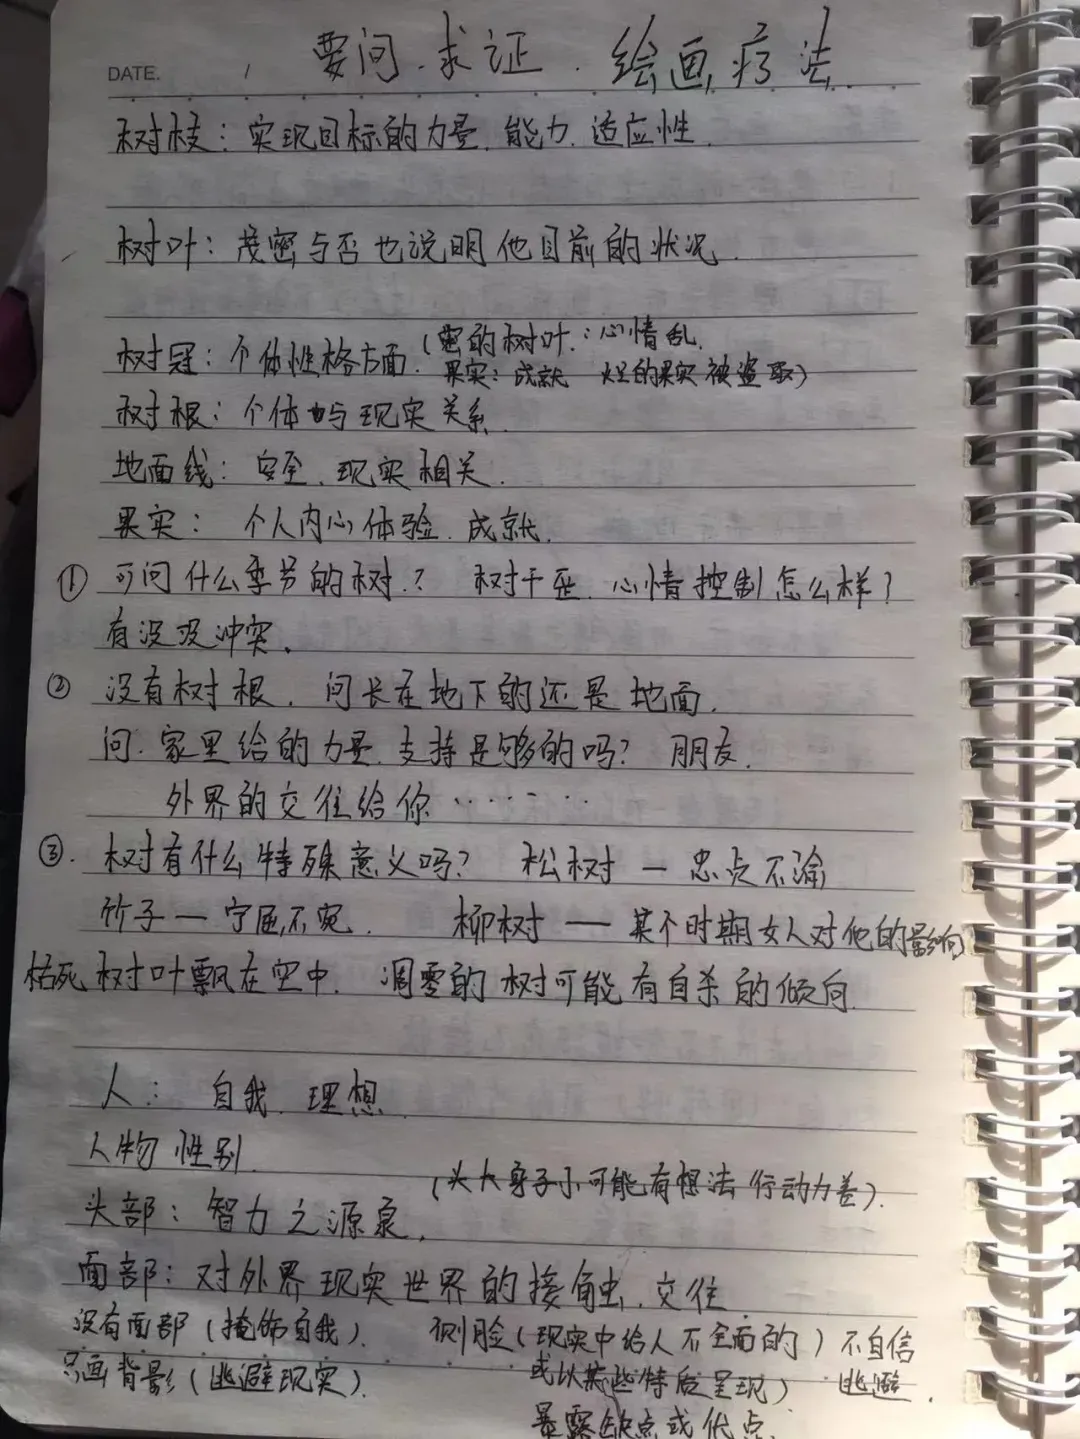 要问.求证.绘画疗法
DATE. /
树枝：实现目标的力量.能力.适应性.
树叶：茂密与否也说明他目前的状况.
树冠：个体性格方面.（密的树叶：心情乱.
果实：成就 烂的果实被盗取）
树根：个体与现实关系.
地面线：安全.现实相关.
果实：个人内心体验.成就.
① 可问什么季节的树？ 树干歪.心情控制怎么样？
有没没冲突.
② 没有树根.问长在地下的还是地面.
问.家里给的力量.支持是够的吗？ 朋友.
外界的交往给你……
③.树有什么特殊意义吗？ 松树—忠贞不渝
竹子—宁屈不宛. 柳树—某个时期女人对他的影响
枯死.树叶飘在空中.凋零的树可能有自杀的倾向.
人： 自我.理想.
人物性别.
（头大身子小可能有想法行动力差）.
头部：智力之源泉.
面部：对外界现实世界的接触.交往
没有面部（掩饰自我）. 侧脸（现实中给人不全面的）不自信
只画背影（逃避现实）. 或以某些特质呈现） 逃避.
暴露缺点或优点.